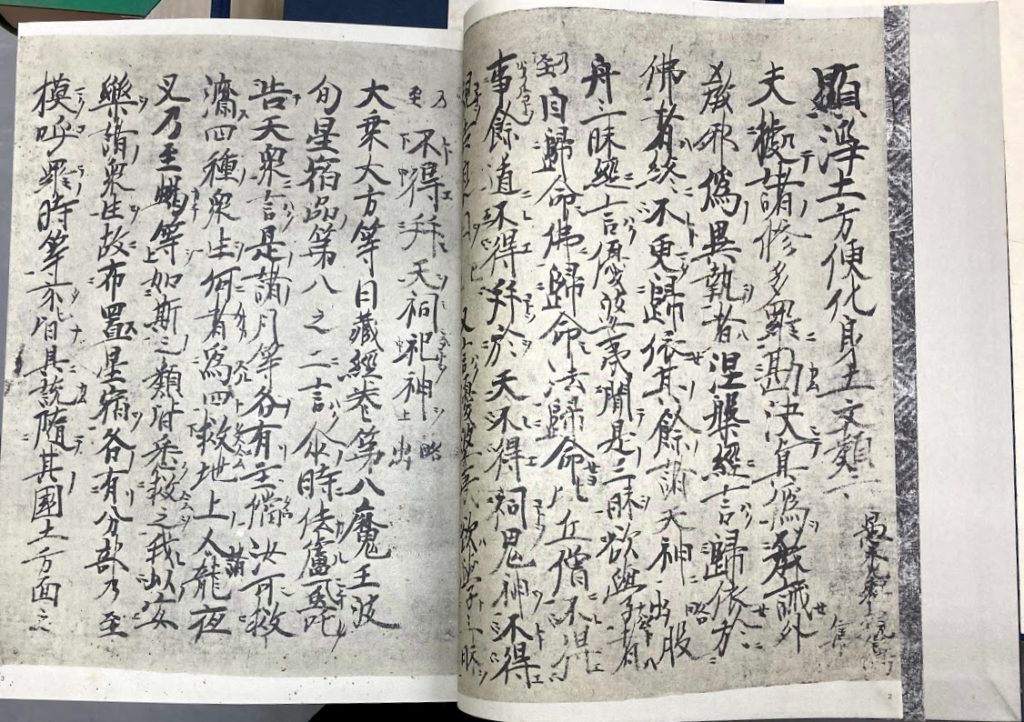 顯淨土方便化身土文類
夫據諸修多羅勘決真僞教誡外
教邪僞異執者涅槃經言歸依於
佛者終不更歸依其餘諸天神 略出 般
舟三昧經言優婆夷聞是三昧欲學者
乃至自歸命佛歸命法歸命比丘僧不得
事餘道不得拜於天不得祠鬼神不得
視吉良日 已上 又言優婆夷欲學三昧
乃至 不得拜天祠祀神 略出
大乘大方等日藏經卷第八魔王波
旬星宿品第八之二言尒時佉盧虱吒
告天衆言是諸月等各有主當汝可救
濟四種衆生何者爲四救地上人諸龍夜
叉乃至蝎等如斯之類皆悉救之我以安
樂諸衆生故布置星宿各有分部乃至
模呼羅時等亦皆具說隨其國土方面之